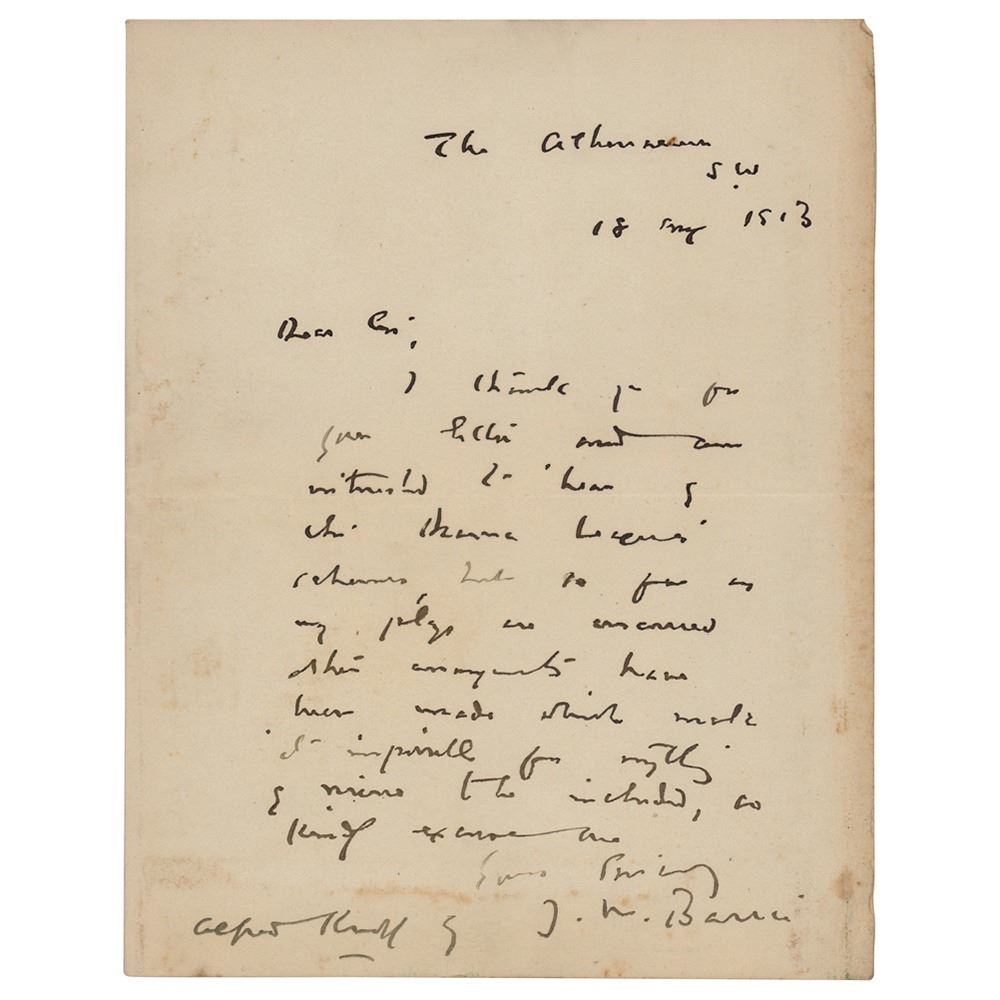 The Athenaeum
S.W
18 Aug 1913
Dear Sir,
I thank you for
your letter and am
interested to hear of
the Drama League's
schemes, but so far as
my plays are concerned
other arrangements have
been made which make
it impossible for anything
of mine to be included, so
kindly excuse me
Yours Sincerely
J. M. Barrie
Alfred Knopf